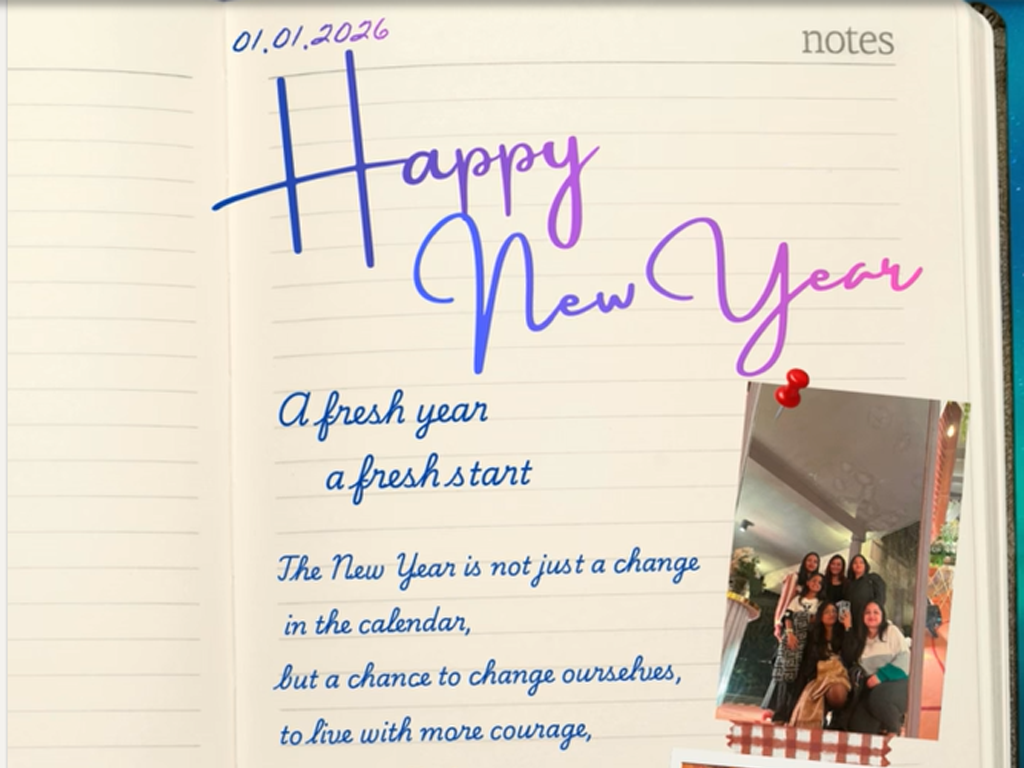 01.01.2026
notes
Happy
New Year
A fresh year
a fresh start
The New Year is not just a change
in the calendar,
but a chance to change ourselves,
to live with more courage,